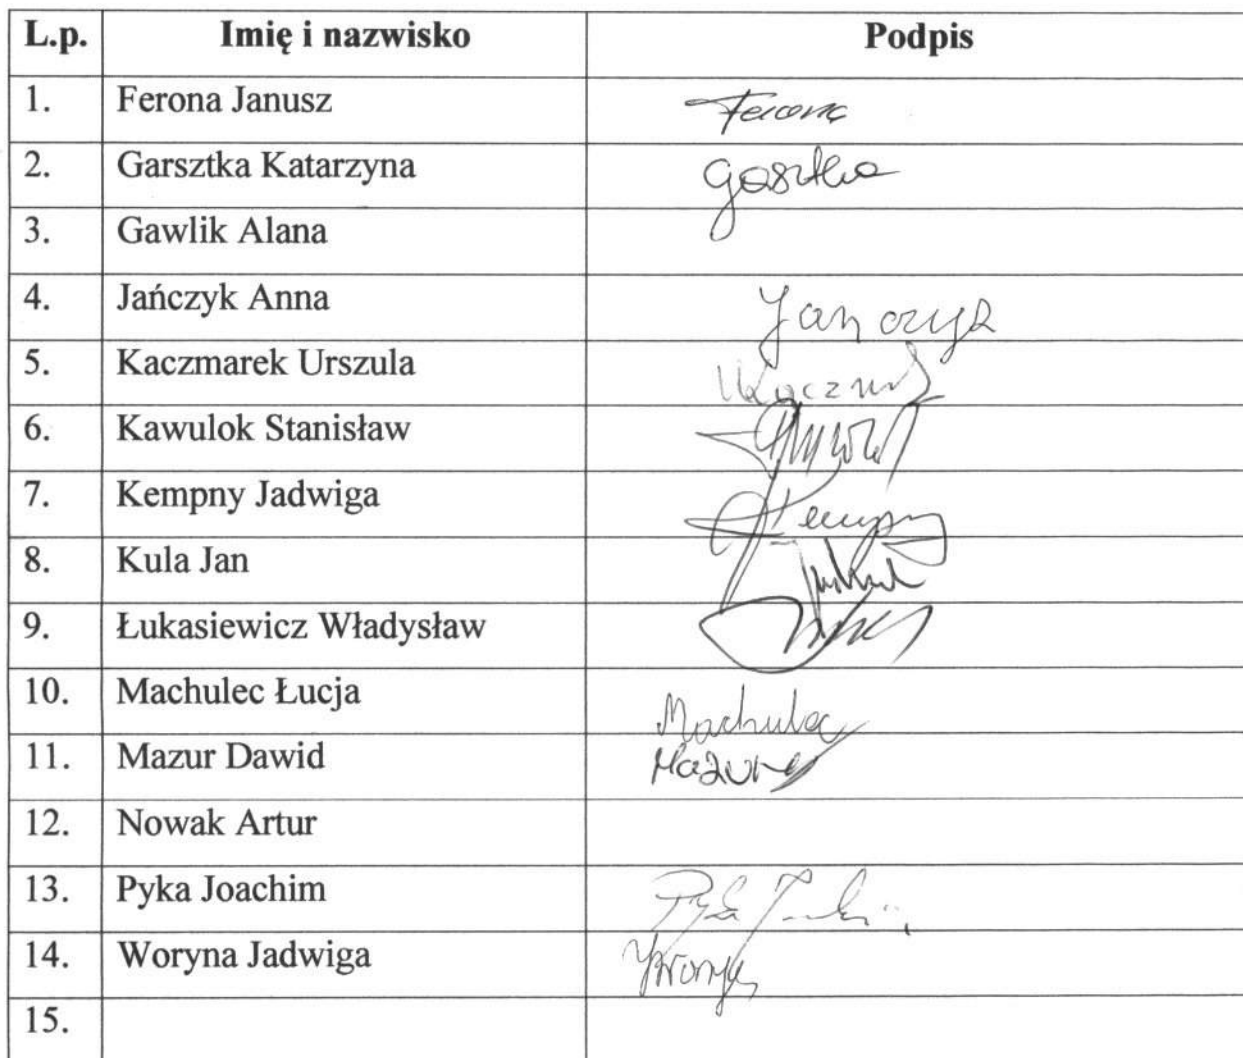 L.p. Imię i nazwisko Podpis
1. Ferona Janusz Ferona
2. Garsztka Katarzyna
3. Gawlik Alana
4. Jańczyk Anna Jańczyk
5. Kaczmarek Urszula
6. Kawulok Stanisław
7. Kempny Jadwiga Kempny
8. Kula Jan
9. Łukasiewicz Władysław
10. Machulec Łucja Machulec
11. Mazur Dawid Mazur
12. Nowak Artur
13. Pyka Joachim Pyka
14. Woryna Jadwiga
15.